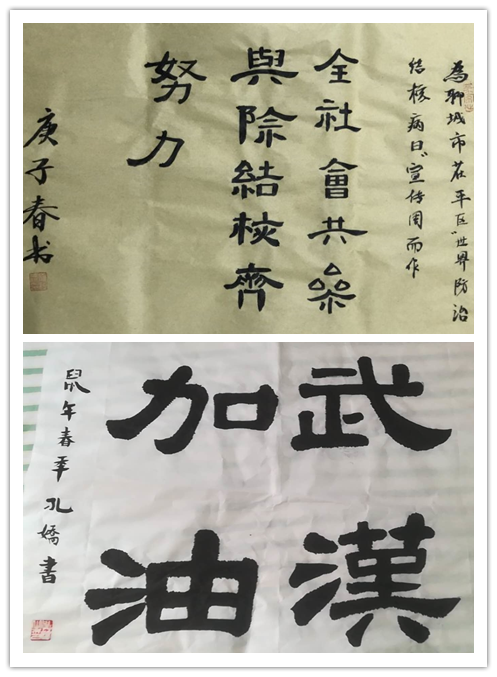 為聊城市茌平区"世界防治
结核病日"宣传周而作
全社會共參
與除結核齊
努力
庚子春书
武漢
加油
鼠年春季孔嬌書